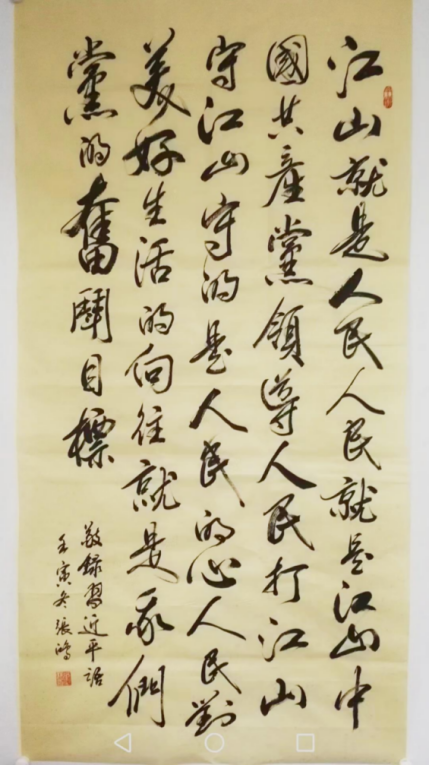 江山就是人民人民就是江山中
國共産黨領導人民打江山
守江山守的是人民的心人民對
美好生活的向往就是我們
黨的奮鬥目標
敬録習近平語
壬寅冬張鴻